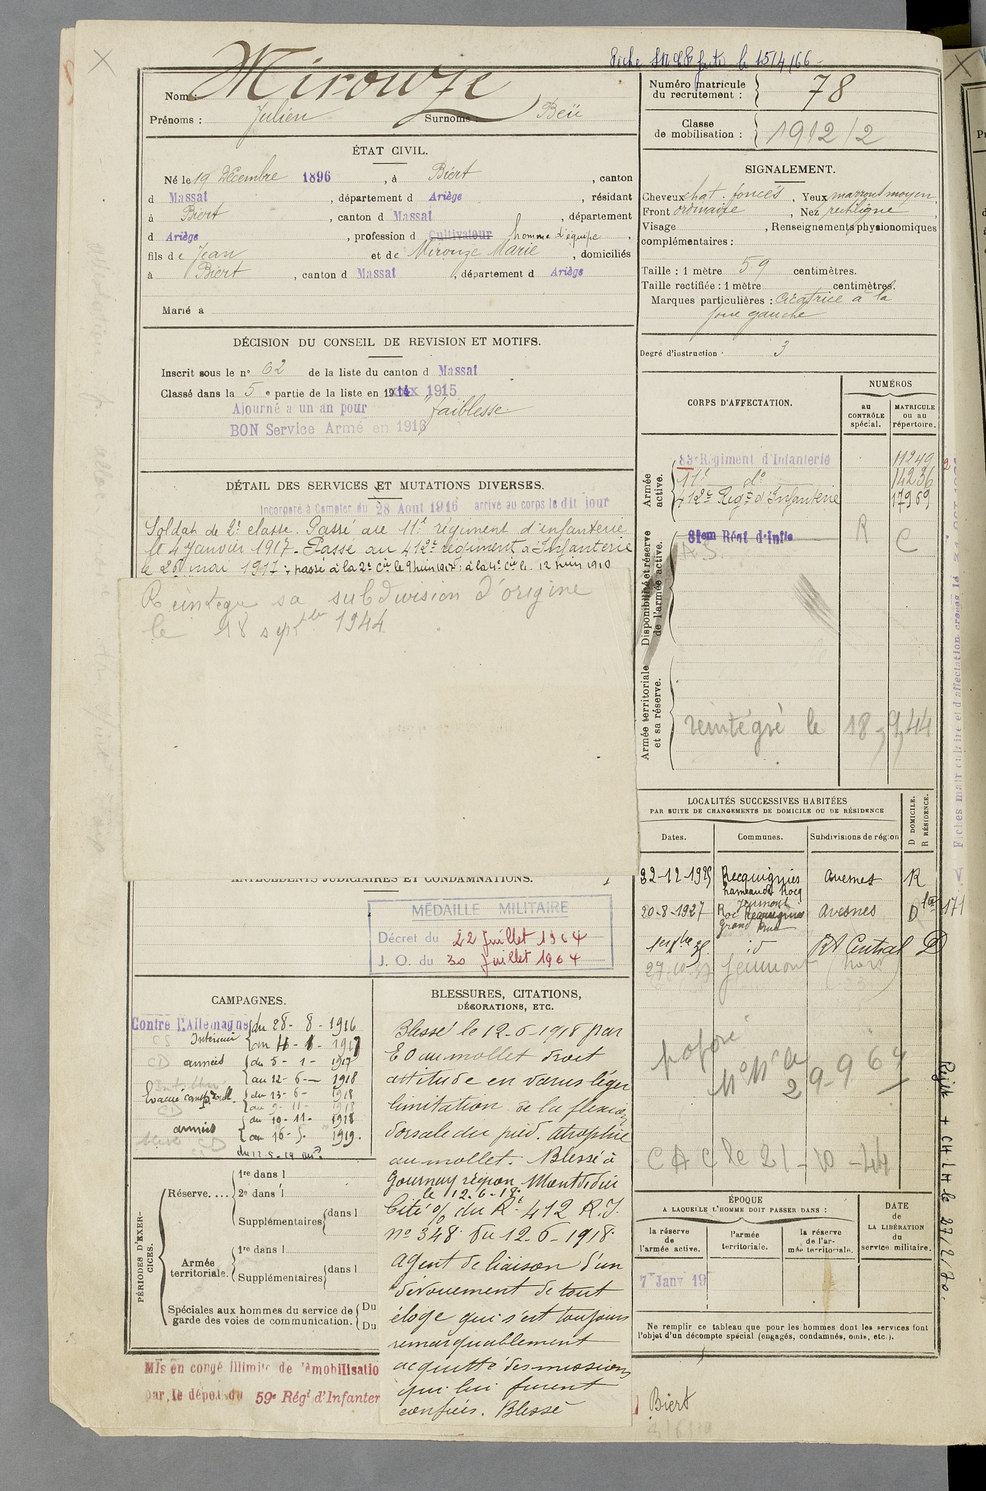 Fiche faite le 15/4/66
Nom : Mirouze
Prénoms : Julien Surnoms : Beü
Numéro matricule du recrutement : 78
Classe de mobilisation : 1912/2
ÉTAT CIVIL.
Né le 19 Décembre 1896, à Biert, canton
d Massat, département d Ariège, résidant
à Biert, canton d Massat, département
d Ariège, profession d Cultivateur homme d'équipe,
fils de Jean et de Mirouze Marie, domiciliés
à Biert, canton d Massat, département d Ariège
Marié à
SIGNALEMENT.
Cheveux chat. foncés, Yeux marron moyen,
Front ordinaire, Nez rectiligne,
Visage , Renseignements physionomiques
complémentaires :
Taille : 1 mètre 59 centimètres.
Taille rectifiée : 1 mètre centimètres.
Marques particulières : Cicatrice à la
joue gauche
Degré d'instruction : 3
DÉCISION DU CONSEIL DE REVISION ET MOTIFS.
Inscrit sous le n° 62 de la liste du canton d Massat
Classé dans la 5e partie de la liste en 1915
Ajourné a un an pour faiblesse
BON Service Armé en 1916
CORPS D'AFFECTATION.
NUMÉROS
au CONTRÔLE spécial.
MATRICULE ou au répertoire.
Armée active.
83e Régiment d'Infanterie 11249
11e do 14236
412e Régt d'Infanterie 17969
Disponibilité et réserve de l'armée active.
81em Régt d'Infie R C
Armée territoriale et sa réserve.
réintégré le 18-9-44
DÉTAIL DES SERVICES ET MUTATIONS DIVERSES.
Incorporé à Compter du 28 Aout 1916 arrivé au corps le dit jour
Soldat de 2e classe. Passé au 11e régiment d'infanterie
le 4 Janvier 1917. Passé au 412e régiment d'Infanterie
le 28 mai 1917; passé à la 2e Cie le 9 juin 1917; à la 4e Cie le 12 juin 1918
Réintègre sa subdivision d'origine
le 18 septbre 1944
ANTÉCÉDENTS JUDICIAIRES ET CONDAMNATIONS.
MÉDAILLE MILITAIRE
Décret du 22 Juillet 1964
J. O. du 30 Juillet 1964
LOCALITÉS SUCCESSIVES HABITÉES
PAR SUITE DE CHANGEMENTS DE DOMICILE OU DE RÉSIDENCE
Dates. Communes. Subdivisions de région
D DOMICILE.
R RÉSIDENCE.
22-12-1925 Recquignies hameau de Rocq Avesnes R
20-8-1927 Jeumont Avesnes D
Grand Rue
id Rt Central D
Jeumont
proposé
29-9 64
CAC le 21-10-44
CAMPAGNES.
Contre l'Allemagne
Intérieur
du 28-8-1916
au 4-1-1917
armées
du 5-1-1917
au 12-6-1918
du 13-6-1918
au 9-11-1918
armées
du 10-11-1918
au 16-5-1919.
BLESSURES, CITATIONS,
DÉCORATIONS, ETC.
Blessé le 12-6-1918 par
E O au mollet droit
attitude en varus léger
limitation de la flexion
dorsale du pied. atrophie
au mollet. Blessé à
Gournay région Montdidier
le 12.6.18.
Cité % du Rt 412 R.I.
n° 348 du 12.6-1918.
Agent de liaison d'un
dévouement de tout
éloge qui s'est toujours
remarquablement
acquitté des missions
qui lui furent
confiées. Blessé
PÉRIODES D'EXERCICES.
Réserve....
1re dans l
2e dans l
Supplémentaires dans l
Armée territoriale.
1re dans l
Supplémentaires dans l
Spéciales aux hommes du service de garde des voies de communication.
Du
Du
ÉPOQUE
A LAQUELLE L'HOMME DOIT PASSER DANS :
la réserve de l'armée active.
l'armée territoriale.
la réserve de l'armée territoriale.
DATE de LA LIBÉRATION du service militaire.
7 Janv 19
Ne remplir ce tableau que pour les hommes dont les services font
l'objet d'un décompte spécial (engagés, condamnés, omis, etc.).
Mis en congé illimité de démobilisatio
par le dépot du 59e Régt d'Infanter
Biert